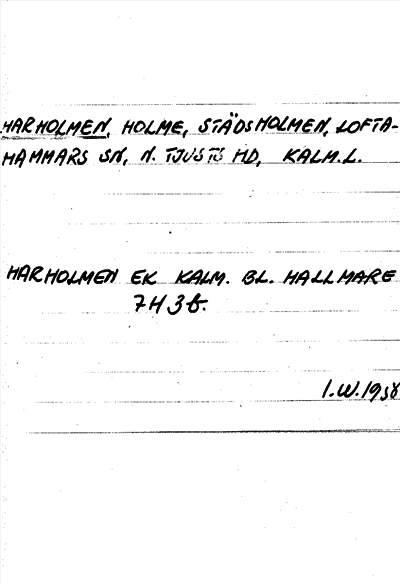 HARHOLMEN, HOLME, STÄDSHOLMEN, LOFTA-
HAMMARS SN, N. TJUSTS HD, KALM.L.
HARHOLMEN EK KALM. BL. HALLMARE
7H3b.
I.W.1958